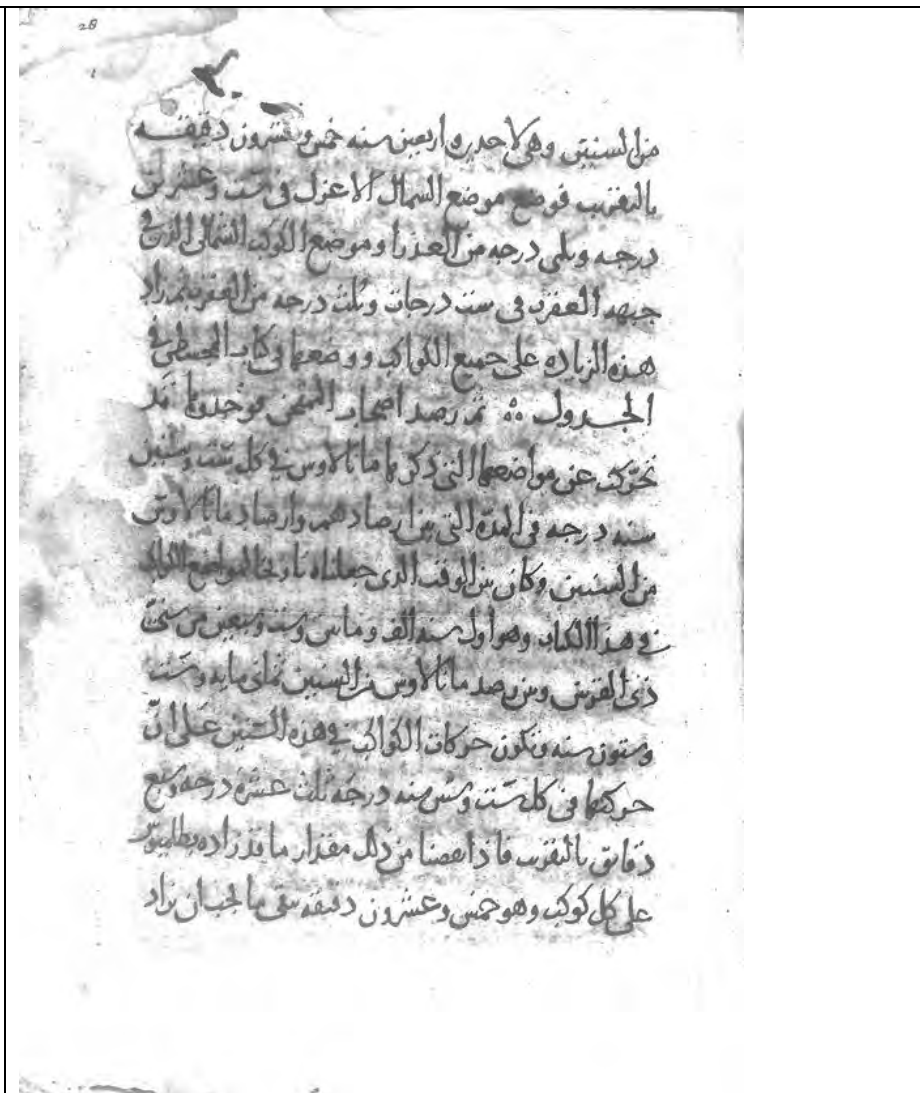 28
من السنين وهى لاحدى واربعين سنه خمس وعشرون دقيقه
بالتقريب فوضع موضع السماك الاعزل فى ست وعشرين
درجه وثلثى درجه من العذرا وموضع الكوكب الشمالى الذى فى
جبهه العقرب فى ست درجات وثلث درجه من العقرب ثم زاد
هذه الزياده على جميع الكواكب ووضعها فى كتاب المجسطى فى
الجدول ثم رصد اصحاب الممتحن فوجدوها قد
تحركت عن مواضعها التى ذكرها مانالاوس فى كل ست وستين
سنه درجه فى المده التى بين ارصادهم وارصاد مانالاوس
من السنين وكان بين الوقت الذى جعلناه تاريخا لمواضع الكواكب
فى هذا الكتاب وهو اول سنه الف ومايتين وست وسبعين من سنى
ذى القرنين وبين رصد مانالاوس من السنين ثمانى مايه وست
وستون سنه فتكون حركات الكواكب فى هذه السنين على ان
حركتها فى كل ست وستين سنه درجه ثلث عشره درجه وسبع
دقايق بالتقريب فاذا نقصنا من ذلك مقدار ما قد زاده بطلميوس
على كل كوكب وهو خمس وعشرون دقيقه بقى ما يجب ان نزاد